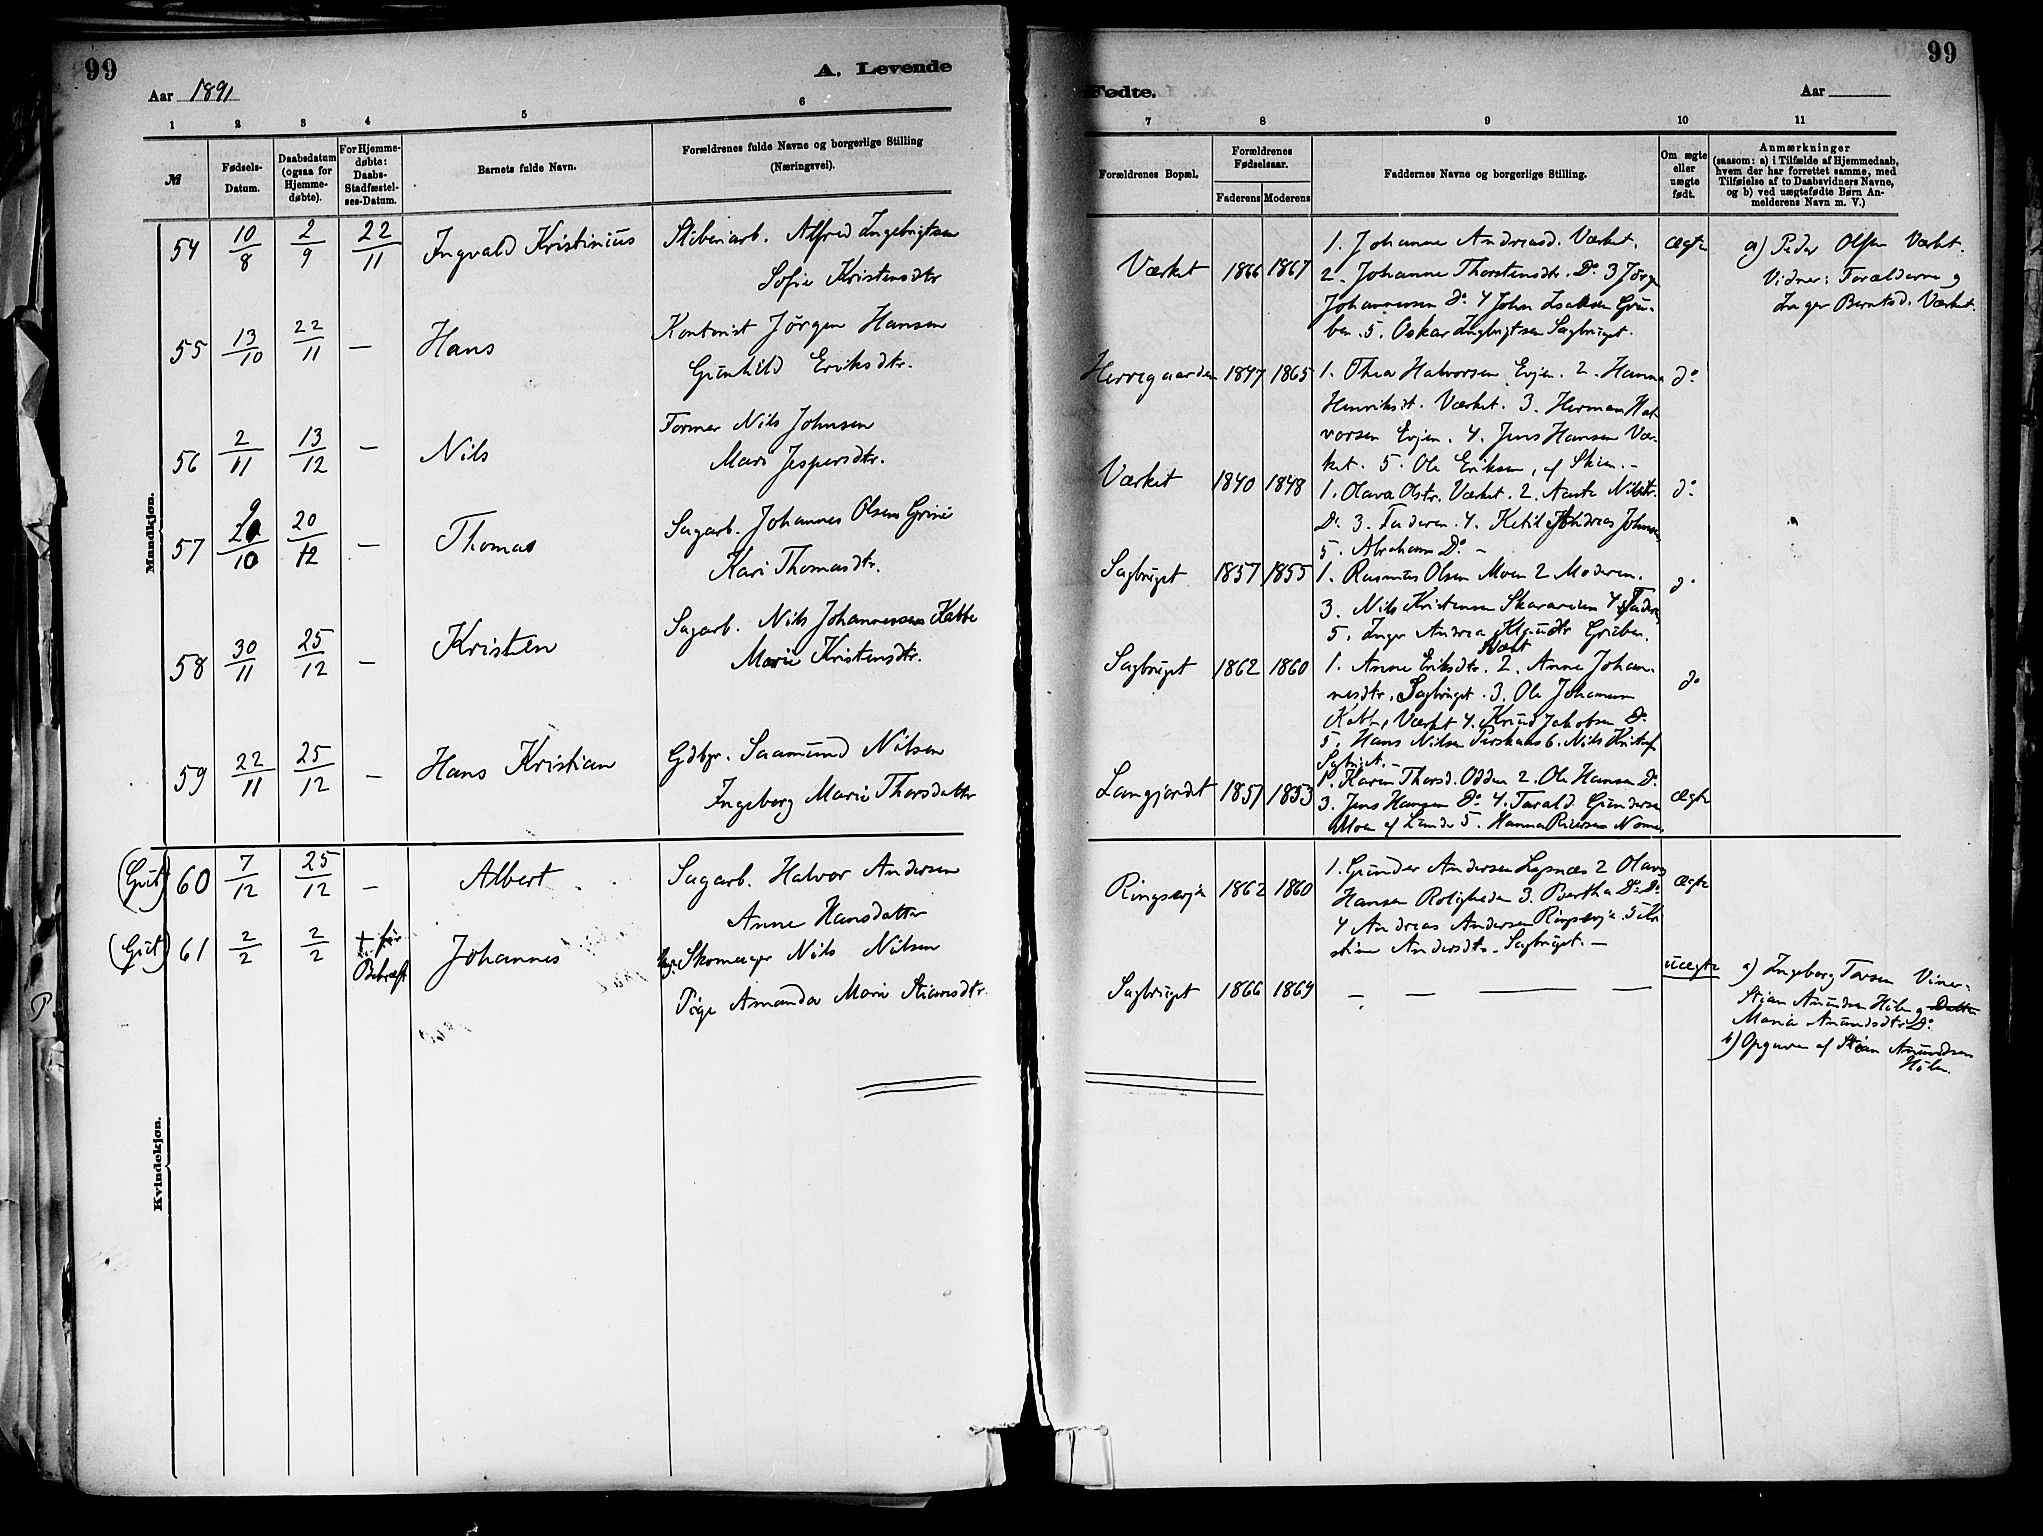 99
A. Levende
Aar 1891
1 2 3 4 5 6
№
Fødsels-
Datum.
Daabsdatum
(ogsaa for
Hjemme-
døbte).
For Hjemme-
døbte:
Daabs-
Stadfæstel-
ses-Datum.
Barnets fulde Navn.
Forældrenes fulde Navne og borgerlige Stilling
(Næringsvei).
Mandkjøn.
54 10/8 2/9 22/11 Ingvald Kristinius
Alfred Ingebrigtsen
Sofie Kristensdtr
55 13/10 22/11 — Hans
Kontorist Jørgen Hansen
Gunhild Eriksdtr.
56 2/11 13/12 — Nils
Former Nils Johnsen
Mari Jespersdtr.
57 10 20/12 — Thomas
Sagarb. Johannes Olsen Grini
Kari Thomasdtr.
58 30/11 25/12 — Kristen
Sagarb. Nils Johannessen Katte
Marie Kristensdtr.
59 22/11 25/12 — Hans Kristian
Gdbgr. Saamund Nilsen
Ingeborg Marie Thorsdatter
(Gut) 60 7/12 25/12 — Albert
Sagarb. Halvor Andersen
Anne Hansdatter
(Gut) 61 2/2 2/2 + før
Bekræft. Johannes
Skomager Nils Nilsen
Pige Amanda Marie Stiansdtr.
Kvindekjøn.
99
Fødte.
Aar
7 8 9 10 11
Forældrenes Bopæl.
Forældrenes
Fødselsaar.
Faderens Moderens
Faddernes Navne og borgerlige Stilling.
Om ægte
eller
uægte
født.
Anmærkninger
(saasom: a) i Tilfælde af Hjemmedaab,
hvem der har forrettet samme, med
Tilføielse af to Daabsvidners Navne,
og b) ved uægtefødte Børn An-
melderens Navn m. V.)
Værket 1866 1867
1. Johanne Andreasd. Værket.
2. Johanne Thorstensdtr. Do 3 Jørgen
Johannesen do 4 John Isaksen Gru-
ben. 5. Oskar Ingebrigtsen Sagbruget.
Ægte
a) Peder Olsen Værket.
Vidner: Forælderne og
Inger Berntsd. Værket.
Herregaarden 1847 1865
1. Thea Halvorsen Evjen. 2. Hanna
Henriksdt. Værket. 3. Herman Hal-
vorsen Evjen. 4. Jens Hansen Vær-
ket. 5. Ole Eriksen, af Skien. —
do
Værket 1840 1848
1. Olava Olstr. Værket. 2. Aaste Nilsdtr.
Do 3. Faderen. 4. Ketil Andreas Johnsen
5. Abraham Do —
do
Sagbruget 1857 1855
1. Rasmus Olsen Moen 2 Moderen.
3. Nils Kristensen 4 Faderen
5. Inger Andrea Gruben.
do
Sagbruget 1862 1860
1. Anne Eriksdtr. 2. Anne Johan-
nesdtr. Sagbruget. 3. Ole Johannesen
Katte, Værket 4. Knud Jakobsen Do
5. Hans Nilsen 6. Nils
do
Langjordet 1857 1853
1. Karen Thorsd. Odden 2. Ole Hansen Do
3. Jens Hansen Do 4. Tarald Gundersen
Moen af Lunde 5. Hanna
Ægte
Ringsevja 1862 1860
1. Gunder Andersen Lysnæs 2 Olava
Hansen Roligheden 3. Bertha Do Do
4 Andreas Andersen Ringsevja. 5 Kri-
stine Andersdtr. Sagbruget. —
Ægte
Sagbruget 1866 1869
— — — —
uægte
a) Ingeborg Torsen
Stian Amundsen Hølen og Datter
Maria Amundsdtr Do
b) Opgaven af Stian Amundsen
Hølen.